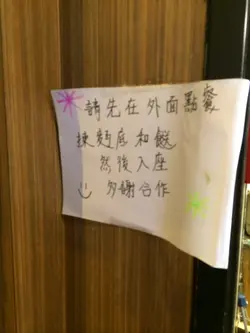 請先在外面點餐
揀麵底和餸
然後入座
多謝合作